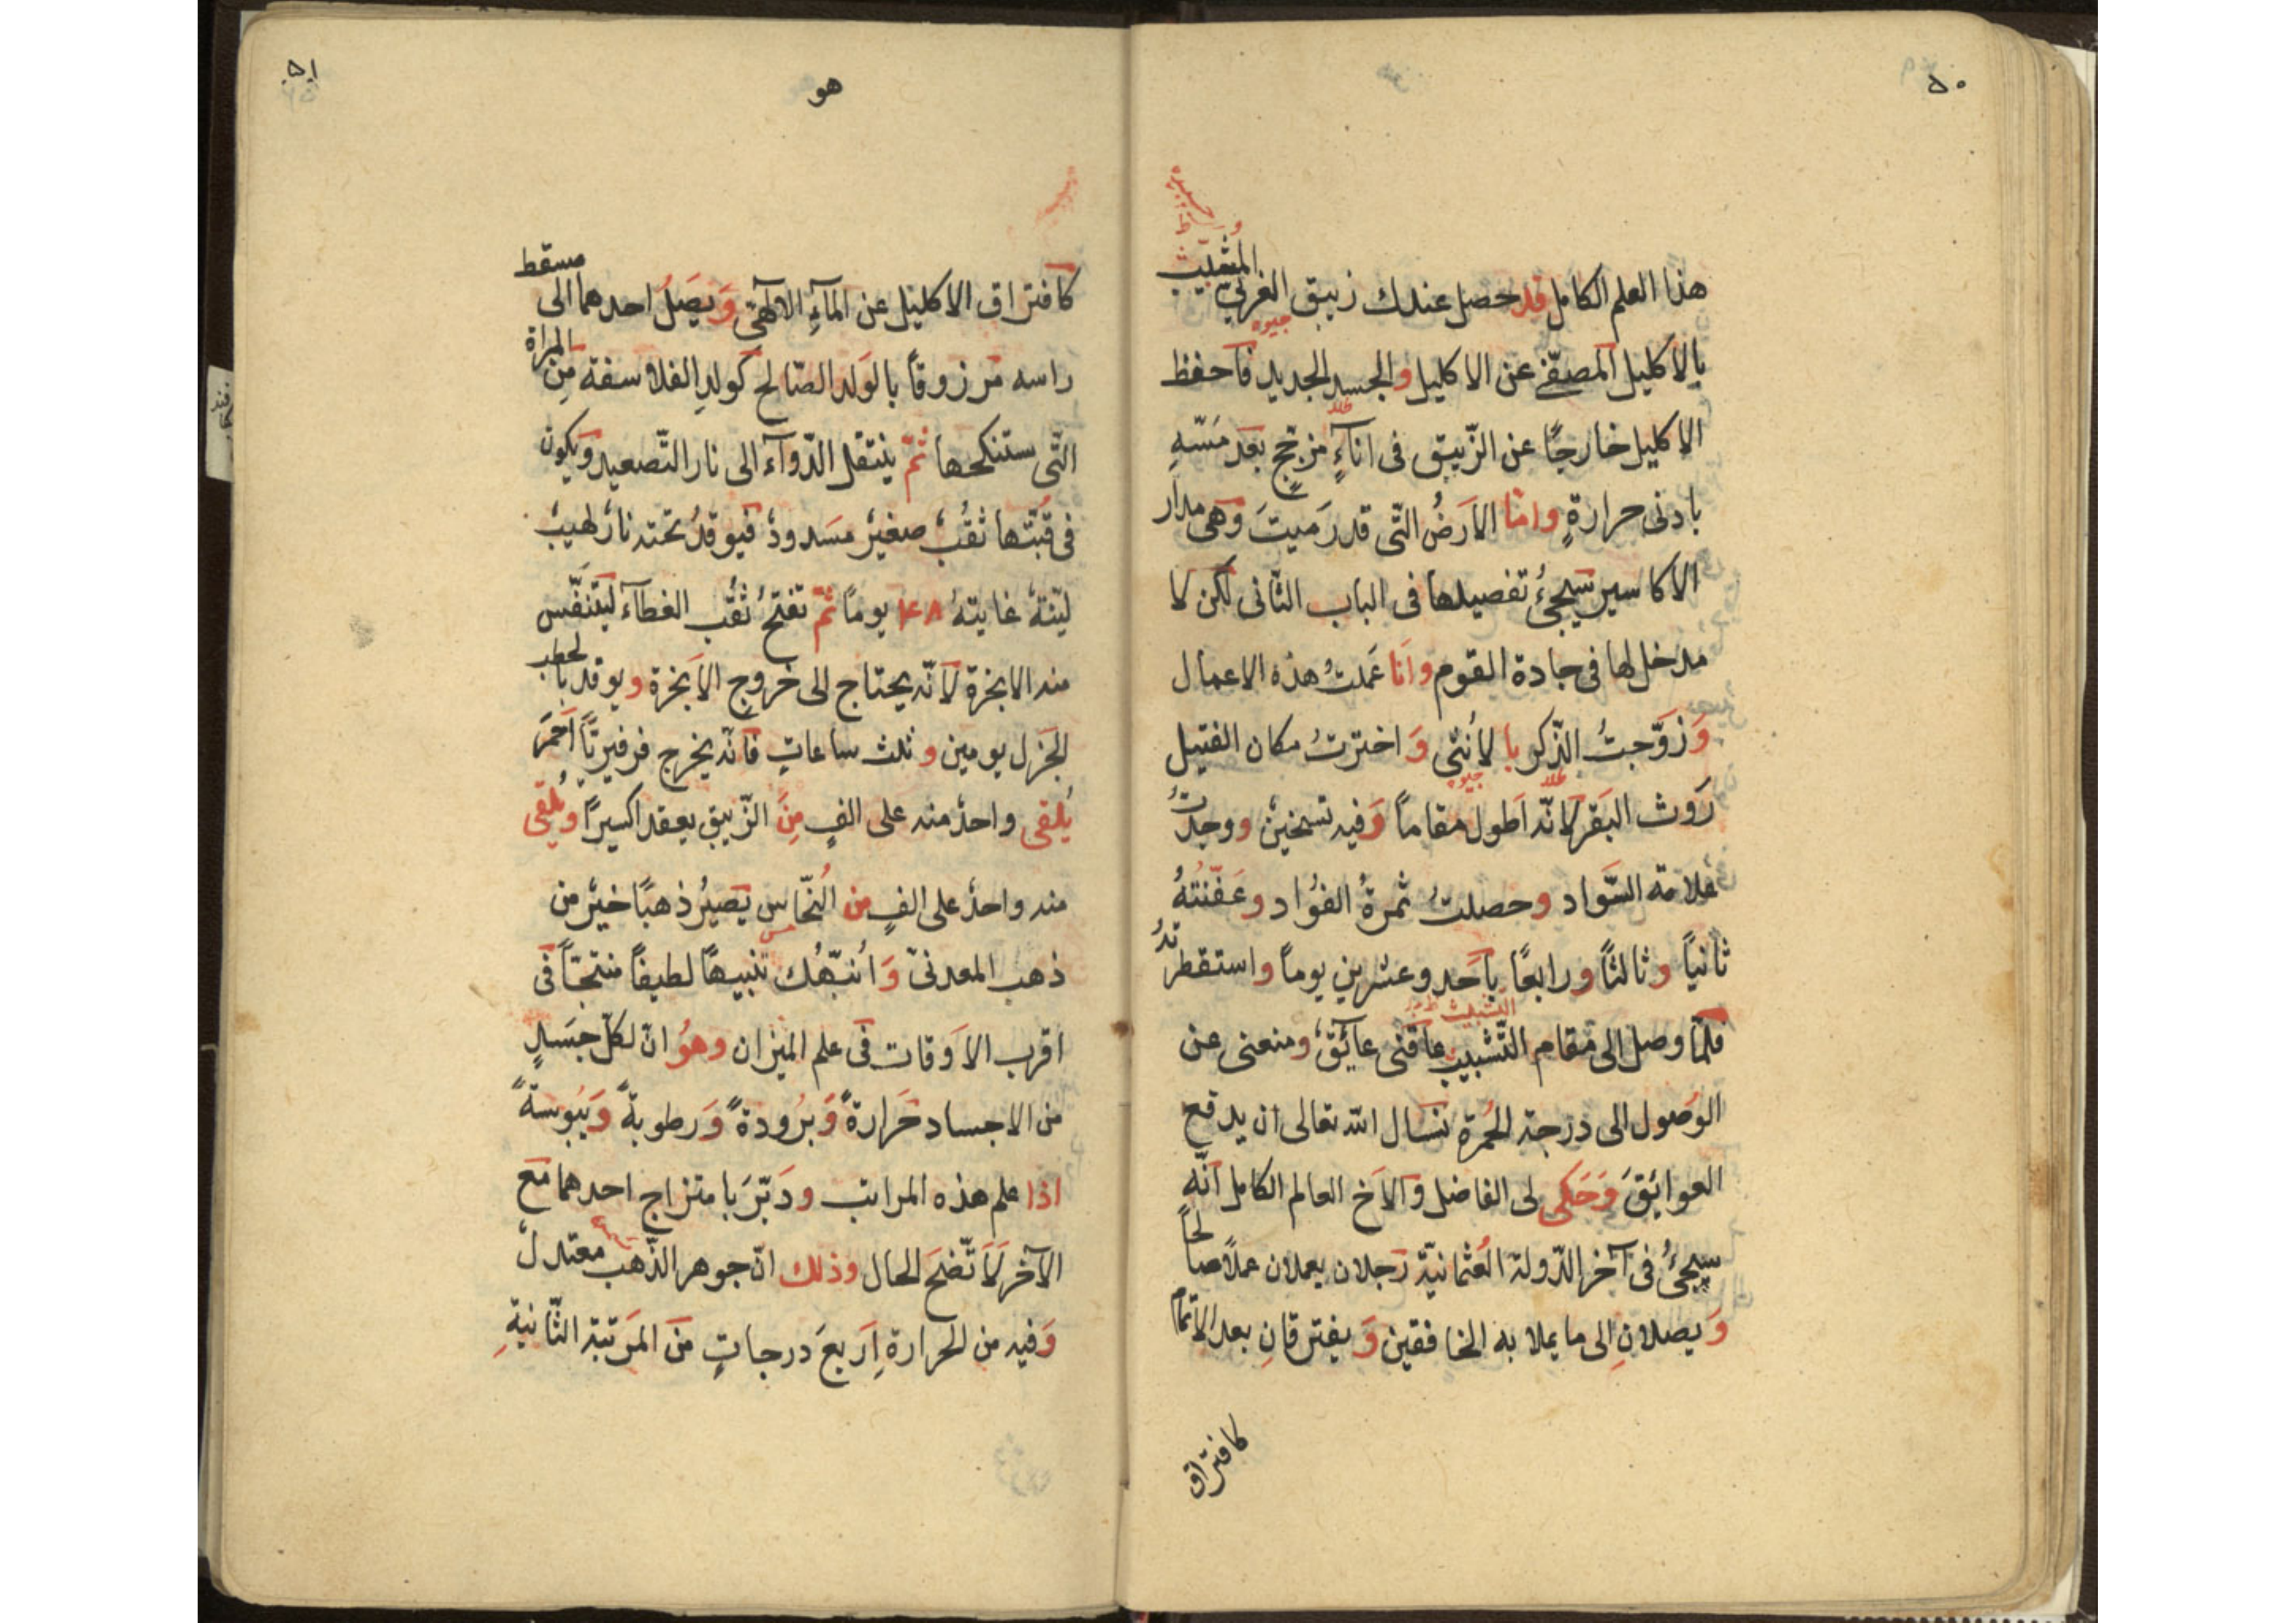 ٥٠
هذا العلم الكامل قد حصل عندك زيبق الغربي المشبّب
بالاكليل المصفّى عن الاكليل والجسد الجديد فاحفظ
الاكليل خارجًا عن الزّيبق فى اناءٍ مزججٍ بعد مَسّهِ
بادنى حرارةٍ وامّا الارَضُ الّتى قد رَميتَ وَهى مدار
الاكاسير سَيجىُٔ تفصيلها فى الباب الثّانى لكن لا
مدخل لها فى جادة القوم وانَا عَملتُ هذه الاعمال
وَزوَّجتُ الذّكر بالاُنثى وَاخترتُ مكان الفتيل
رَوث البَقر لانّه اَطول مقاماً وَفيه تسخينٌ ووجدتُ
علامة السَّواد وحصلتُ ثمرةُ الفؤاد وعَفّنتهُ
ثانياً وثالثاً ورابعًا باَحد وعشرين يوماً واستقطرتهُ
فلمّا وصل الى مَقام التّشبيب عاقنى عائقٌ ومنعنى عن
الوصول الى درجة الحُمرة نسال الله تعالى ان يدفع
العوائقَ وَحَكى لى الفاضل وَالاَخ العالم الكامل انّه
سيجىُٔ فى آخر الدّولة العُثمانيّة رَجلان يعملان عملاً صالحاً
وَيصلانِ الى ما يملا به الخافقين وَيفترقانِ بعد الاتمام
كافتراق
٥١
هو
كافتراق الاكليل عن المآءِ الالآهىّ وَيصَلُ احدهما الى مسقط
راسه مَرزوقاً بالوَلد الصّالح كَولدِ الفلاسفة مِن المراة
الّتى ستنكحها ثمّ ينتقل الدّوآء الى نار التّصعيد وَيكون
فى قُبّتها ثقُبٌ صغيرٌ مسَدودٌ فيوقدُ تحته نارٌ لهيبٌ
ليّنةٌ غايتهٔ ١٤٨ يوماً ثمّ تفتحُ ثقُب الغطآء ليتنفّس
منه الابخرة لانّه يحتاج الى خروجِ الاَبخرة ويوقد بالحطب
الجَزل يومين وثلث ساعاتٍ فانّه يخرج فرفيريّاً اَحمَر
يُلقى واحدٌ منه على الفٍ مِنَ الزّيبق يعقد اكسيراً ويُلقى
منه واحدٌ على الفٍ من النّحاس يَصيرُ ذهبًا خيرٌ من
ذهب المعدنىّ وَاُنبّهُك تنبيهاً لطيفاً منتجاً فى
اقرب الاَوقات فى علم الميزان وهُو انّ لكلّ جسَدٍ
من الاجساد حَرارةً وَبرُودةً وَرطوبةً وَيبُوسةً
اذا علم هذه المراتب ودَبّرَ بامتزاج احدهما مع
الآخر لاَتّضحَ الحال وذلك انّ جوهر الذّهب معتدلٌ
وَفيه من الحرارة اَربعَ درجاتٍ من المرَتبة الثّانيةِ